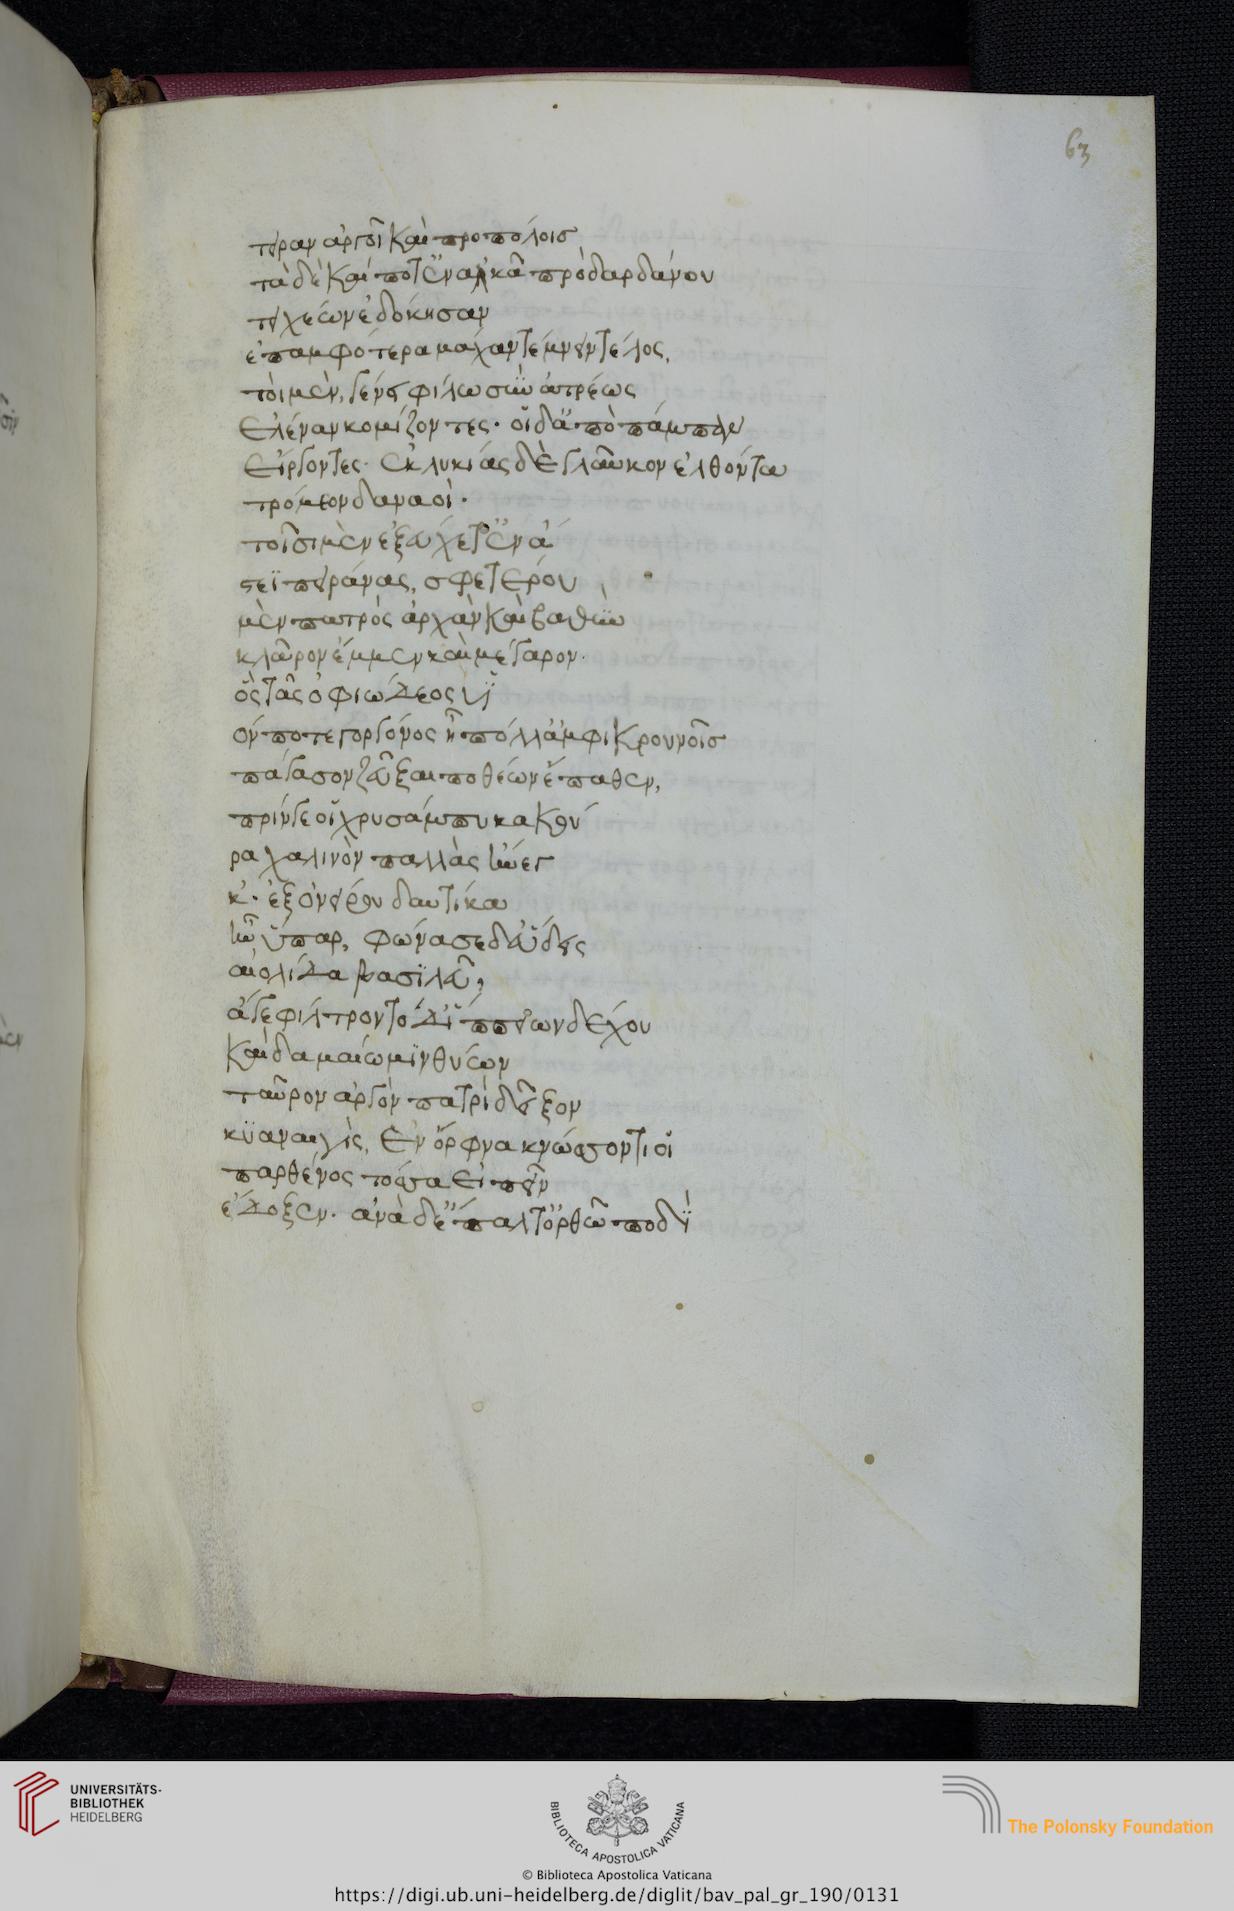 63
τειραν ἀργοῖ καὶ προπόλοις
τὰ δὲ καί ποτ' ἐν ἀλκᾷ πρὸ δαρδάνου
τειχέων ἐδόκησαν
ἐπ' ἀμφότερα μαχᾶν τέμνειν τέλος,
τοὶ μὲν, γένει φίλω σὺν ἀτρέως
ἑλέναν κομίζοντες· οἱ δ' ἀπὸ πάμπαν
εἴργοντες· ἐκ λυκίας δὲ γλαῦκον ἐλθόντα
τρόμεον δαναοί·
τοῖσι μὲν ἐξεύχετ' ἐν ἄ
στεϊ πειράνας, σφετέρου
μὲν πατρὸς ἀρχὰν καὶ βαθὺν
κλᾶρον ἔμμεν καὶ μέγαρον·
ὃς τᾶς ὀφιώδεος υἱ
όν ποτε γοργόνος ἦ πόλλ' ἀμφὶ κρουνοῖς
πάγασον ζεῦξαι ποθέων ἔπαθεν,
πρίν γέ οἱ χρυσάμπυκα κού
ρα χαλινὸν παλλὰς ἤνεγ
κ'· ἐξ ὀνείρου δ' αὐτίκα
ἦν ὕπαρ, φώνασε δ' εὕδεις
αἰολίδα βασιλεῦ,
ἄγε φίλτρον τόδ' ἵππειον δέχου
καὶ δαμαίω μιν θύεων
ταῦρον ἀργὸν πατρὶ δεῖξον
κυάναιγις, ἐν ὄρφνα κνώσσοντί οἱ
παρθένος τόσα εἰπεῖν
ἔδοξεν· ἀνὰ δ' ἔπαλτ' ὀρθῷ ποδί
UNIVERSITÄTS-
BIBLIOTHEK
HEIDELBERG
BIBLIOTECA APOSTOLICA VATICANA
The Polonsky Foundation
© Biblioteca Apostolica Vaticana
https://digi.ub.uni-heidelberg.de/diglit/bav_pal_gr_190/0131